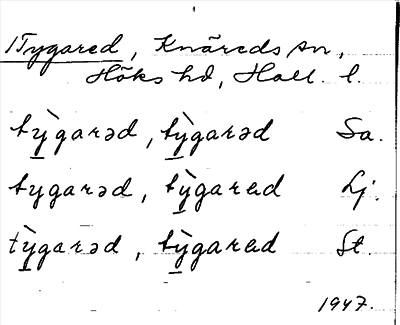 1Tygared, Knäreds sn,
Höks hd, Hall. l.
tỳ̲garəd, tỳ̲garəd Sa.
tygarəd, tỳ̲garɛd Lj.
tỳ̲garəd, tỳ̲garɛd St.
1947.